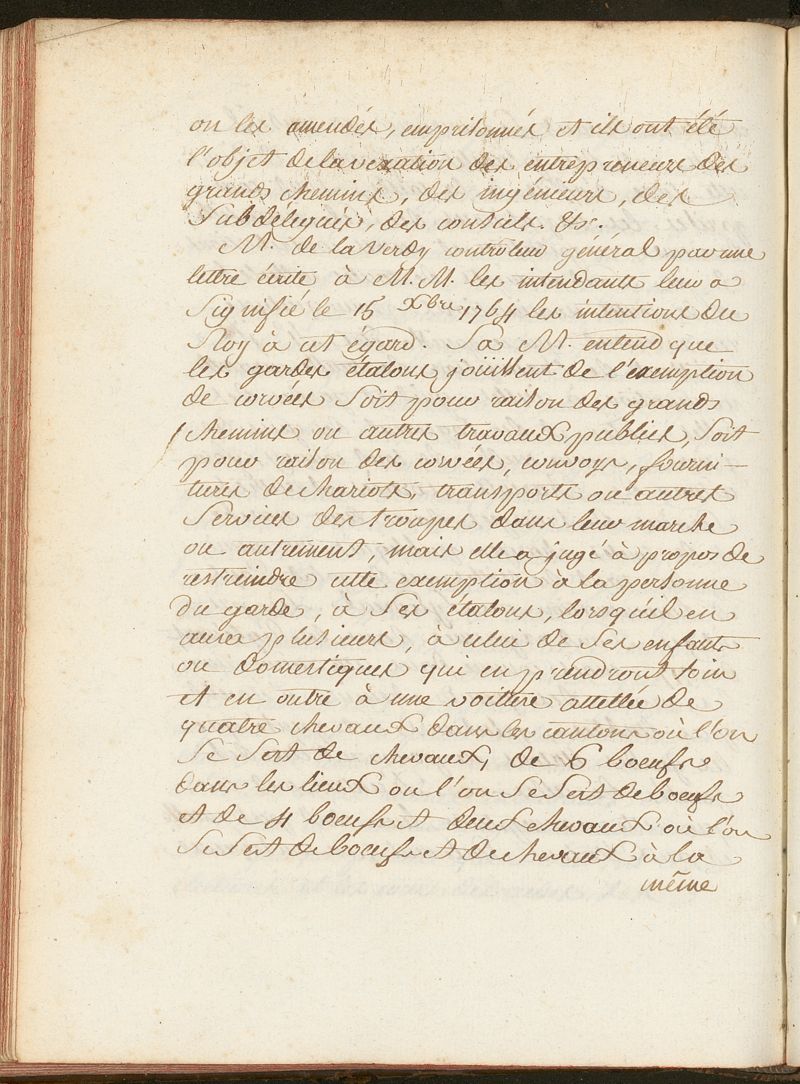 on les amendés, emprisonnés et ils ont été
l'objet de la vexation des entrepreneurs des
grands chemins, des ingénieurs, des
Subdélégués, des consuls. &c.
M. de laverdy controleur général par une
lettre écrite à M.M. les intendants leur a
Signifié le 15 Xbre 1764 les intentions du
Roy à cet égard. Sa M. entend que
les gardes étalons joüissent de l'exemption
de corvées Soit pour raison des grands
chemins ou autres travaux publics, Soit
pour raison des corvées, convoys, fourni-
tures de chariots, transports ou autres
Services des troupes dans leur marche
ou autrement, mais elle a jugé à propos de
restreindre cette exemption à la personne
du garde, à Ses étalons, lorsqu'il en
aura plusieurs, à celui de Ses enfants
ou domestiques qui en prendront soin
et en outre à une voiture attellée de
quatre chevaux dans les cantons où l'on
Se Sert de chevaux, de 6 boeufs
dans les lieux ou l'on Se Sert de boeufs
et de 4 boeufs et deux chevaux où l'on
Se Sert de boeufs et de chevaux à la
même